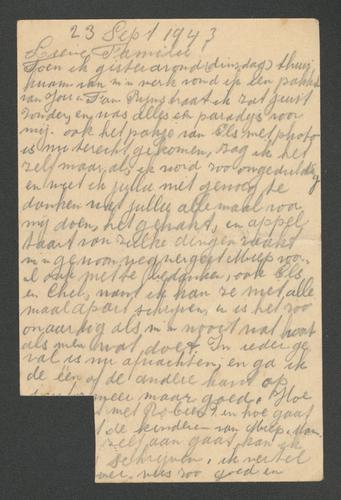 23 Sept 1943
Lieve Familie,
Toen ik gisteravond (dinsdag) thuis
kwam van m'n werk vond ik een pakket
van Jou en Fam straat ik zat juist
zonder, en was alles een paradijs voor
mij. ook het pakje van Els met photo
is nu terecht gekomen, zag ik het
zelf maar, als ik word zoo ongeduldig
en weet ik jullie niet genoeg te
danken wat jullie allemaal voor
mij doen, het gehakt, en appel
taart van zulke dingen raakt
m'n genoen weg vergeet Miep voor
al ook niet te bedanken, ook Els
en Chel, want ik kan ze niet alle
maal apart schrijven, en is het zoo
onaardig als m'n nooit wat hoort
als men wat doet. In ieder ge
val is nu afwachten, en ga ik
de één of de andere kant op
meer maar goed. Hoe
met Robbie? en hoe gaat
't de kinderen van Miep. Mam
aan gaat, kan ik
schrijven. ik vertel
over, was zoo goed en